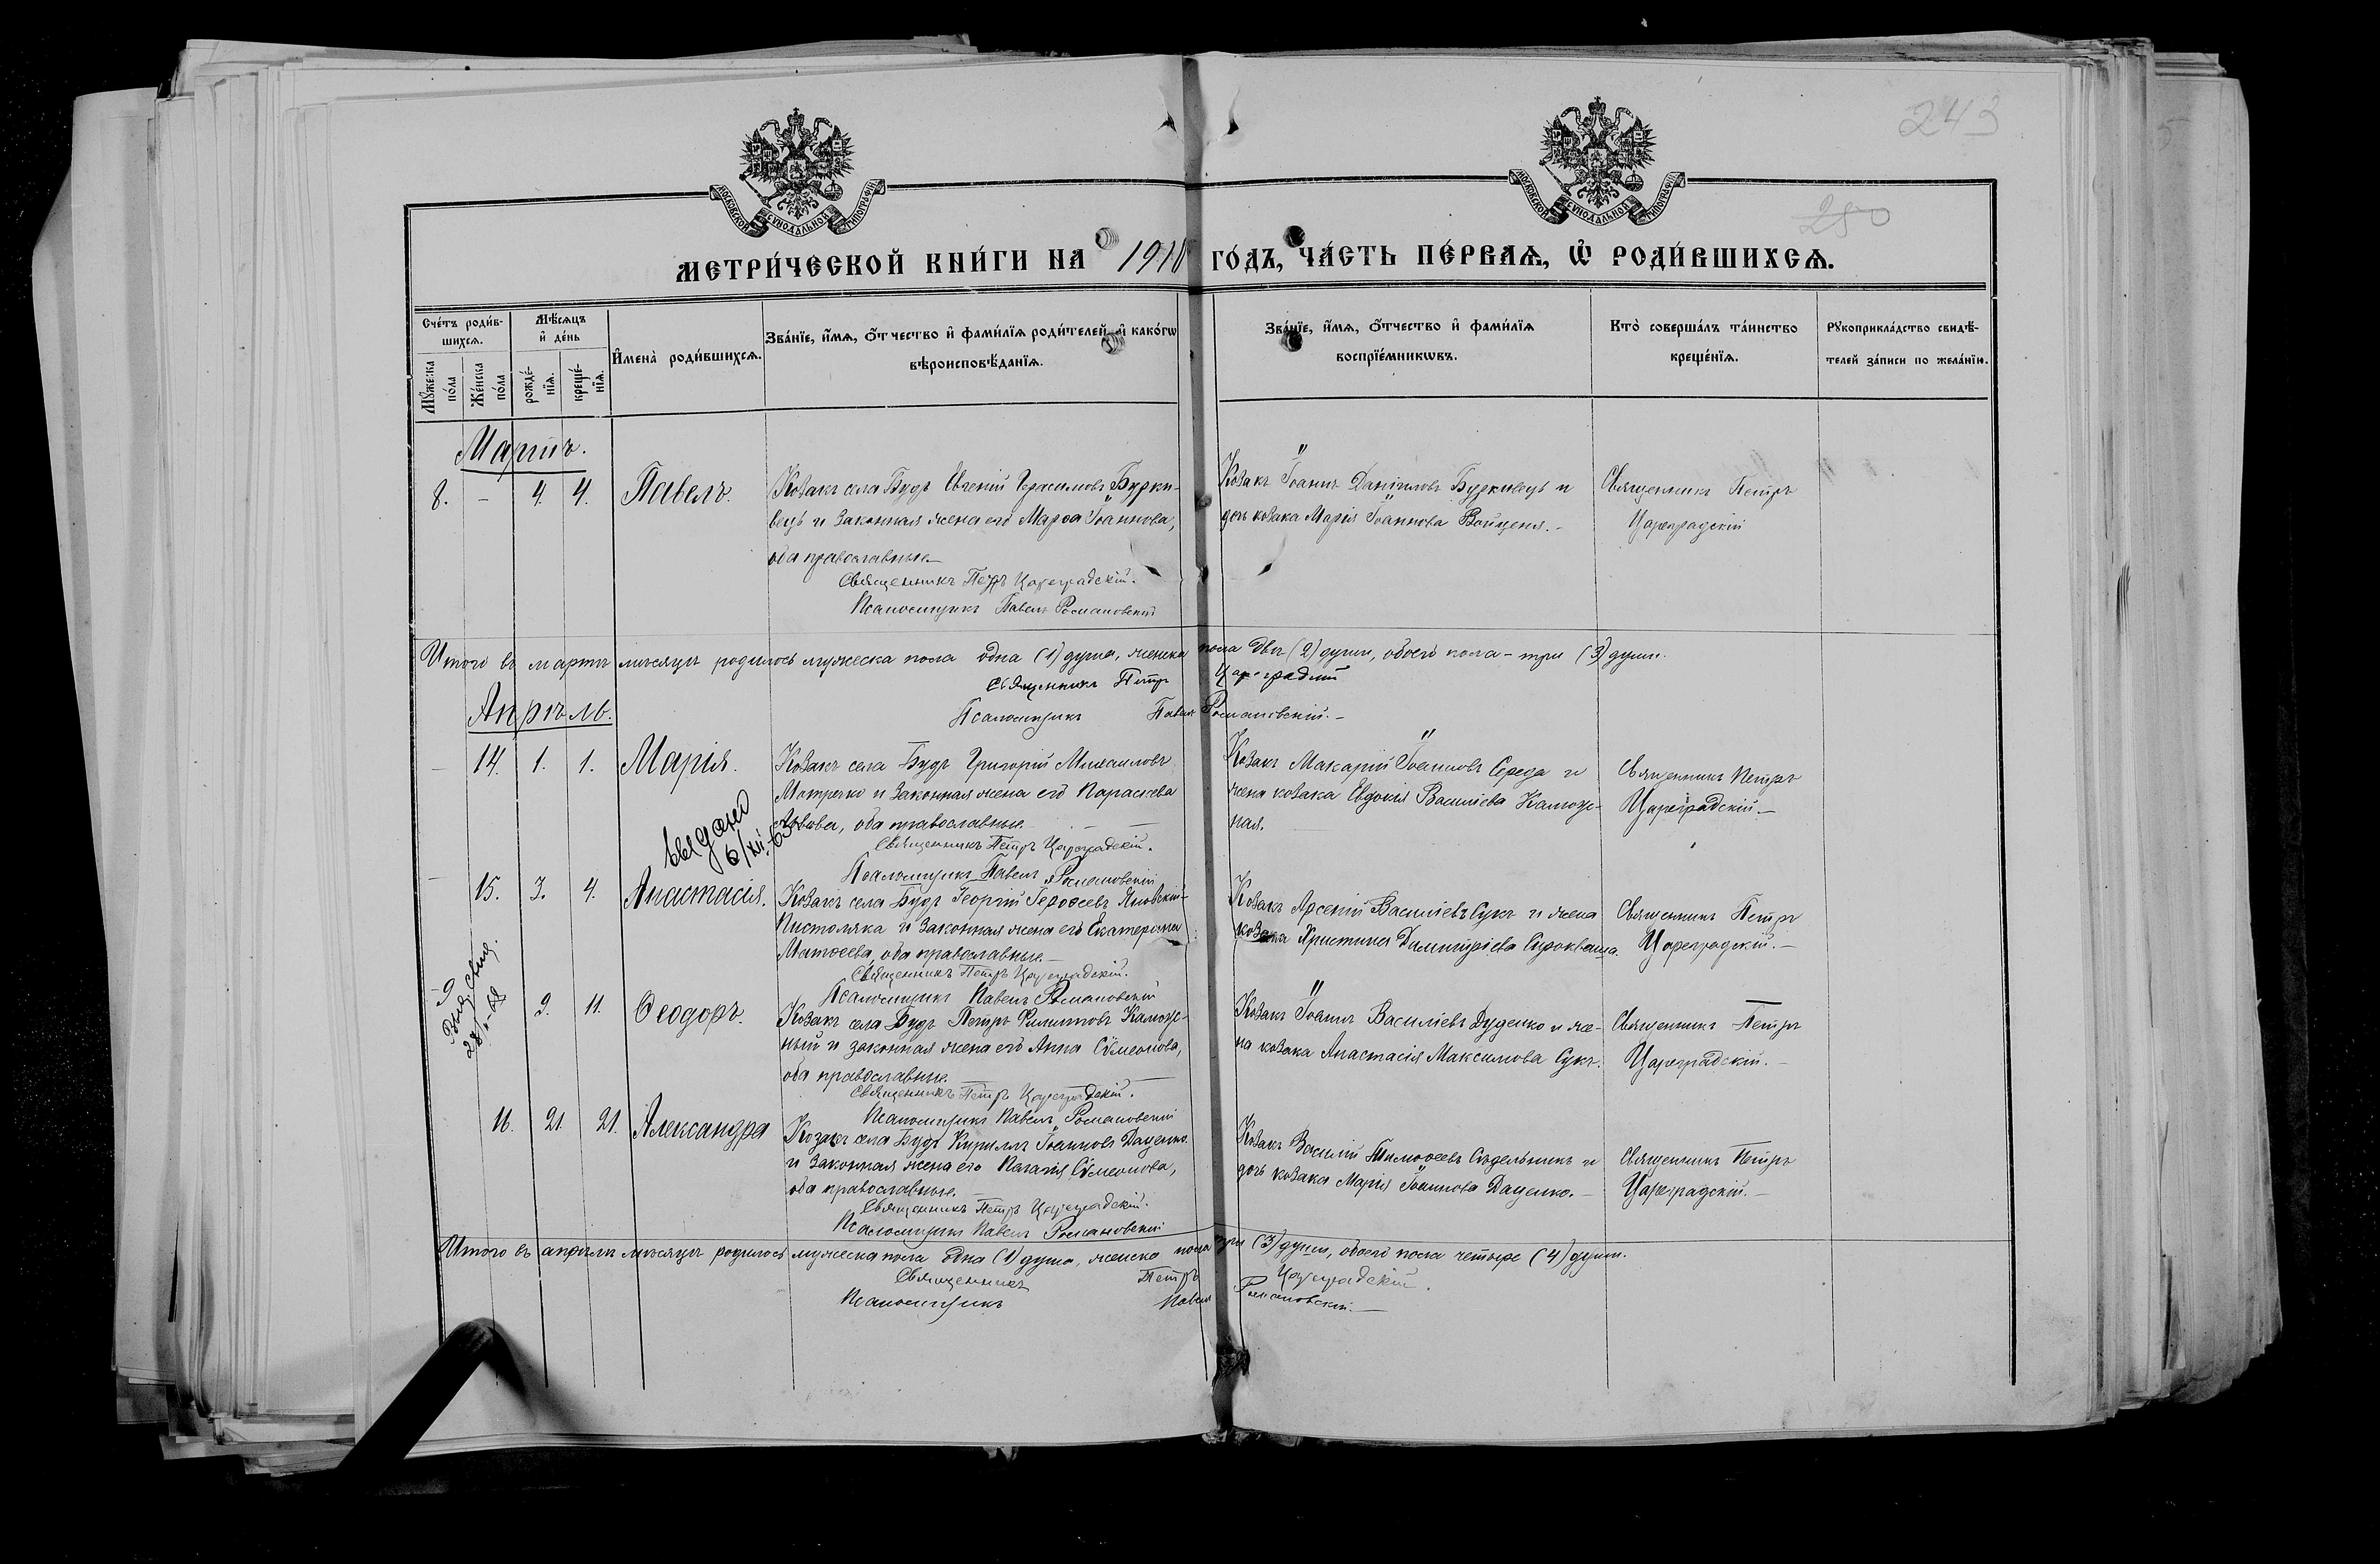 243
250
МОСКОВСКОЙ СѴНОДАЛЬНОЙ ТИПОГРАФІИ
МОСКОВСКОЙ СѴНОДАЛЬНОЙ ТИПОГРАФІИ
МЕТРИ́ЧЕСКОЙ КНИ́ГИ НА 1910 ГО́ДЪ, ЧА́СТЬ ПЕ́РВАѦ, Ѿ РОДИ́ВШИХСѦ.
Сче́тъ роди́в-
шихсѧ.
Мꙋ́жеска по́ла
Же́нска по́ла
Мѣ́сѧцъ и҆ де́нь
рожде́-нїѧ.
креще́-нїѧ.
И҆мена̀ роди́вшихсѧ.
Зва́нїе, и҆́мѧ, ѻ҆́тчество и҆ фами́лїѧ роди́телей, и҆ како́гѡ
вѣроисповѣ́данїѧ.
Зва́нїе, и҆́мѧ, ѻ҆́тчество и҆ фами́лїѧ
воспрїе́мникѡвъ.
Кто̀ соверша́лъ та́инство
креще́нїѧ.
Рꙋкоприкла́дство свидѣ́-
телей за́писи по жела́нїю.
Мартъ.
8. - 4. 4. Павелъ.
Козакъ села Будъ Евгеній Герасимовъ Бурки-
вецъ и законная жена его Марѳа Іоаннова,
оба православные.
Священникъ Петръ Цареградскій.
Псаломщикъ Павелъ Романовскій
Козакъ Іоаннъ Даніиловъ Буркивецъ и
дочь козака Марія Іоаннова Войценя.
Священникъ Петръ
Цареградскій
Итого въ мартѣ мѣсяцѣ родилось мужеска пола одна (1) душа, женска пола двѣ (2) души, обоего пола - три (3) души.
Священникъ Петръ Цареградскій
Псаломщикъ Павелъ Романовскій.
Апрѣль.
- 14. 1. 1. Марія.
Козакъ села Будъ Григорій Михаиловъ
Мотречко и законная жена его Параскева
Львова, оба православные.
Священникъ Петръ Цареградскій.
Псаломщикъ Павелъ Романовскій
Козакъ Макарій Іоанновъ Середа и
жена козака Евдокія Василіева Калюж-
ная.
Священникъ Петръ
Цареградскій.
выдано
6/XII-63
- 15. 3. 4. Анастасія.
Козакъ села Будъ Георгій Яновскій-
Пистоляка и законная жена его Екатерина
Матѳеева, оба православные.
Священникъ Петръ Цареградскій.
Псаломщикъ Павелъ Романовскій
Козакъ Арсеній Василіевъ Сукъ и жена
козака Христина Димитріева Сырокваша.
Священникъ Петръ
Цареградскій.
9
28
9. 11. Ѳеодоръ.
Козакъ села Будъ Петръ Филипповъ Калюж-
ный и законная жена его Анна Сѵмеонова,
оба православные.
Священникъ Петръ Цареградскій.
Псаломщикъ Павелъ Романовскій
Козакъ Іоаннъ Василіевъ Дуденко и же-
на козака Анастасія Максимова Сукъ.
Священникъ Петръ
Цареградскій.
16. 21. 21. Александра
Козакъ села Будъ Кириллъ Іоанновъ Даценко
и законная жена его Пелагія Сѵмеонова,
оба православные.
Священникъ Петръ Цареградскій.
Псаломщикъ Павелъ Романовскій
Козакъ Василій Тимоѳеевъ Сѣдельникъ и
дочь козака Марія Іоаннова Даценко.
Священникъ Петръ
Цареградскій.
Итого въ апрѣлѣ мѣсяцѣ родилось мужеска пола одна (1) душа, женска пола три (3) души, обоего пола четыре (4) души.
Священникъ Петръ Цареградскій.
Псаломщикъ Павелъ Романовскій.